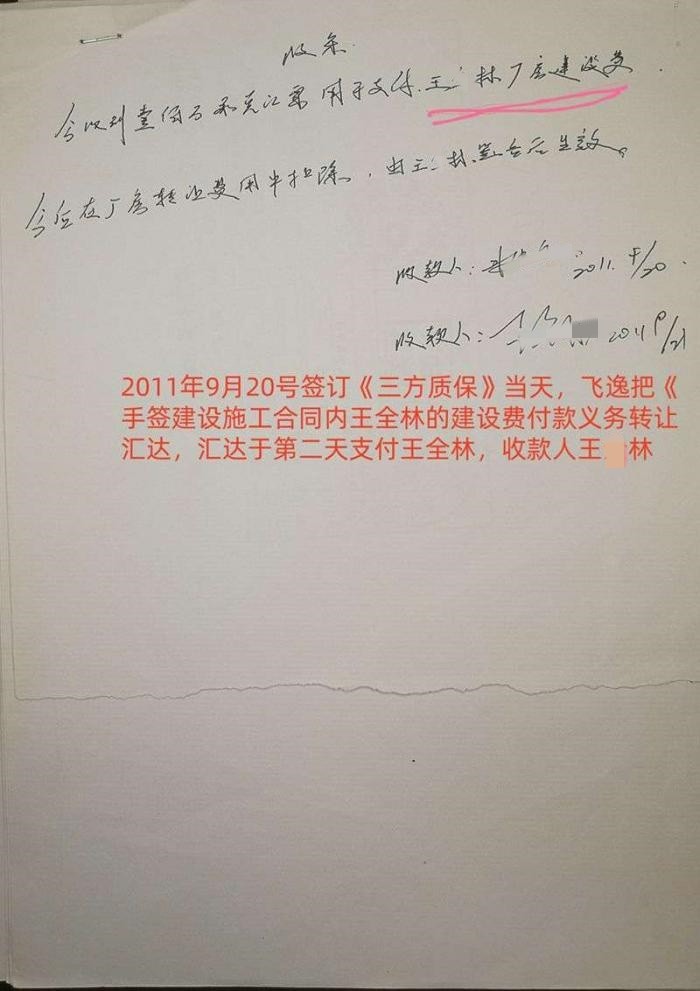 收条
今收到壹佰万承兑汇票用于支付王 林厂房建设费.
今后在厂房转让费用中扣除,由王 林签名后生效。
收款人: 2011. 9/20
收款人: 2011 9/21
2011年9月20号签订《三方质保》当天，飞逸把《
手签建设施工合同内王全林的建设费付款义务转让
汇达，汇达于第二天支付王全林，收款人王 林